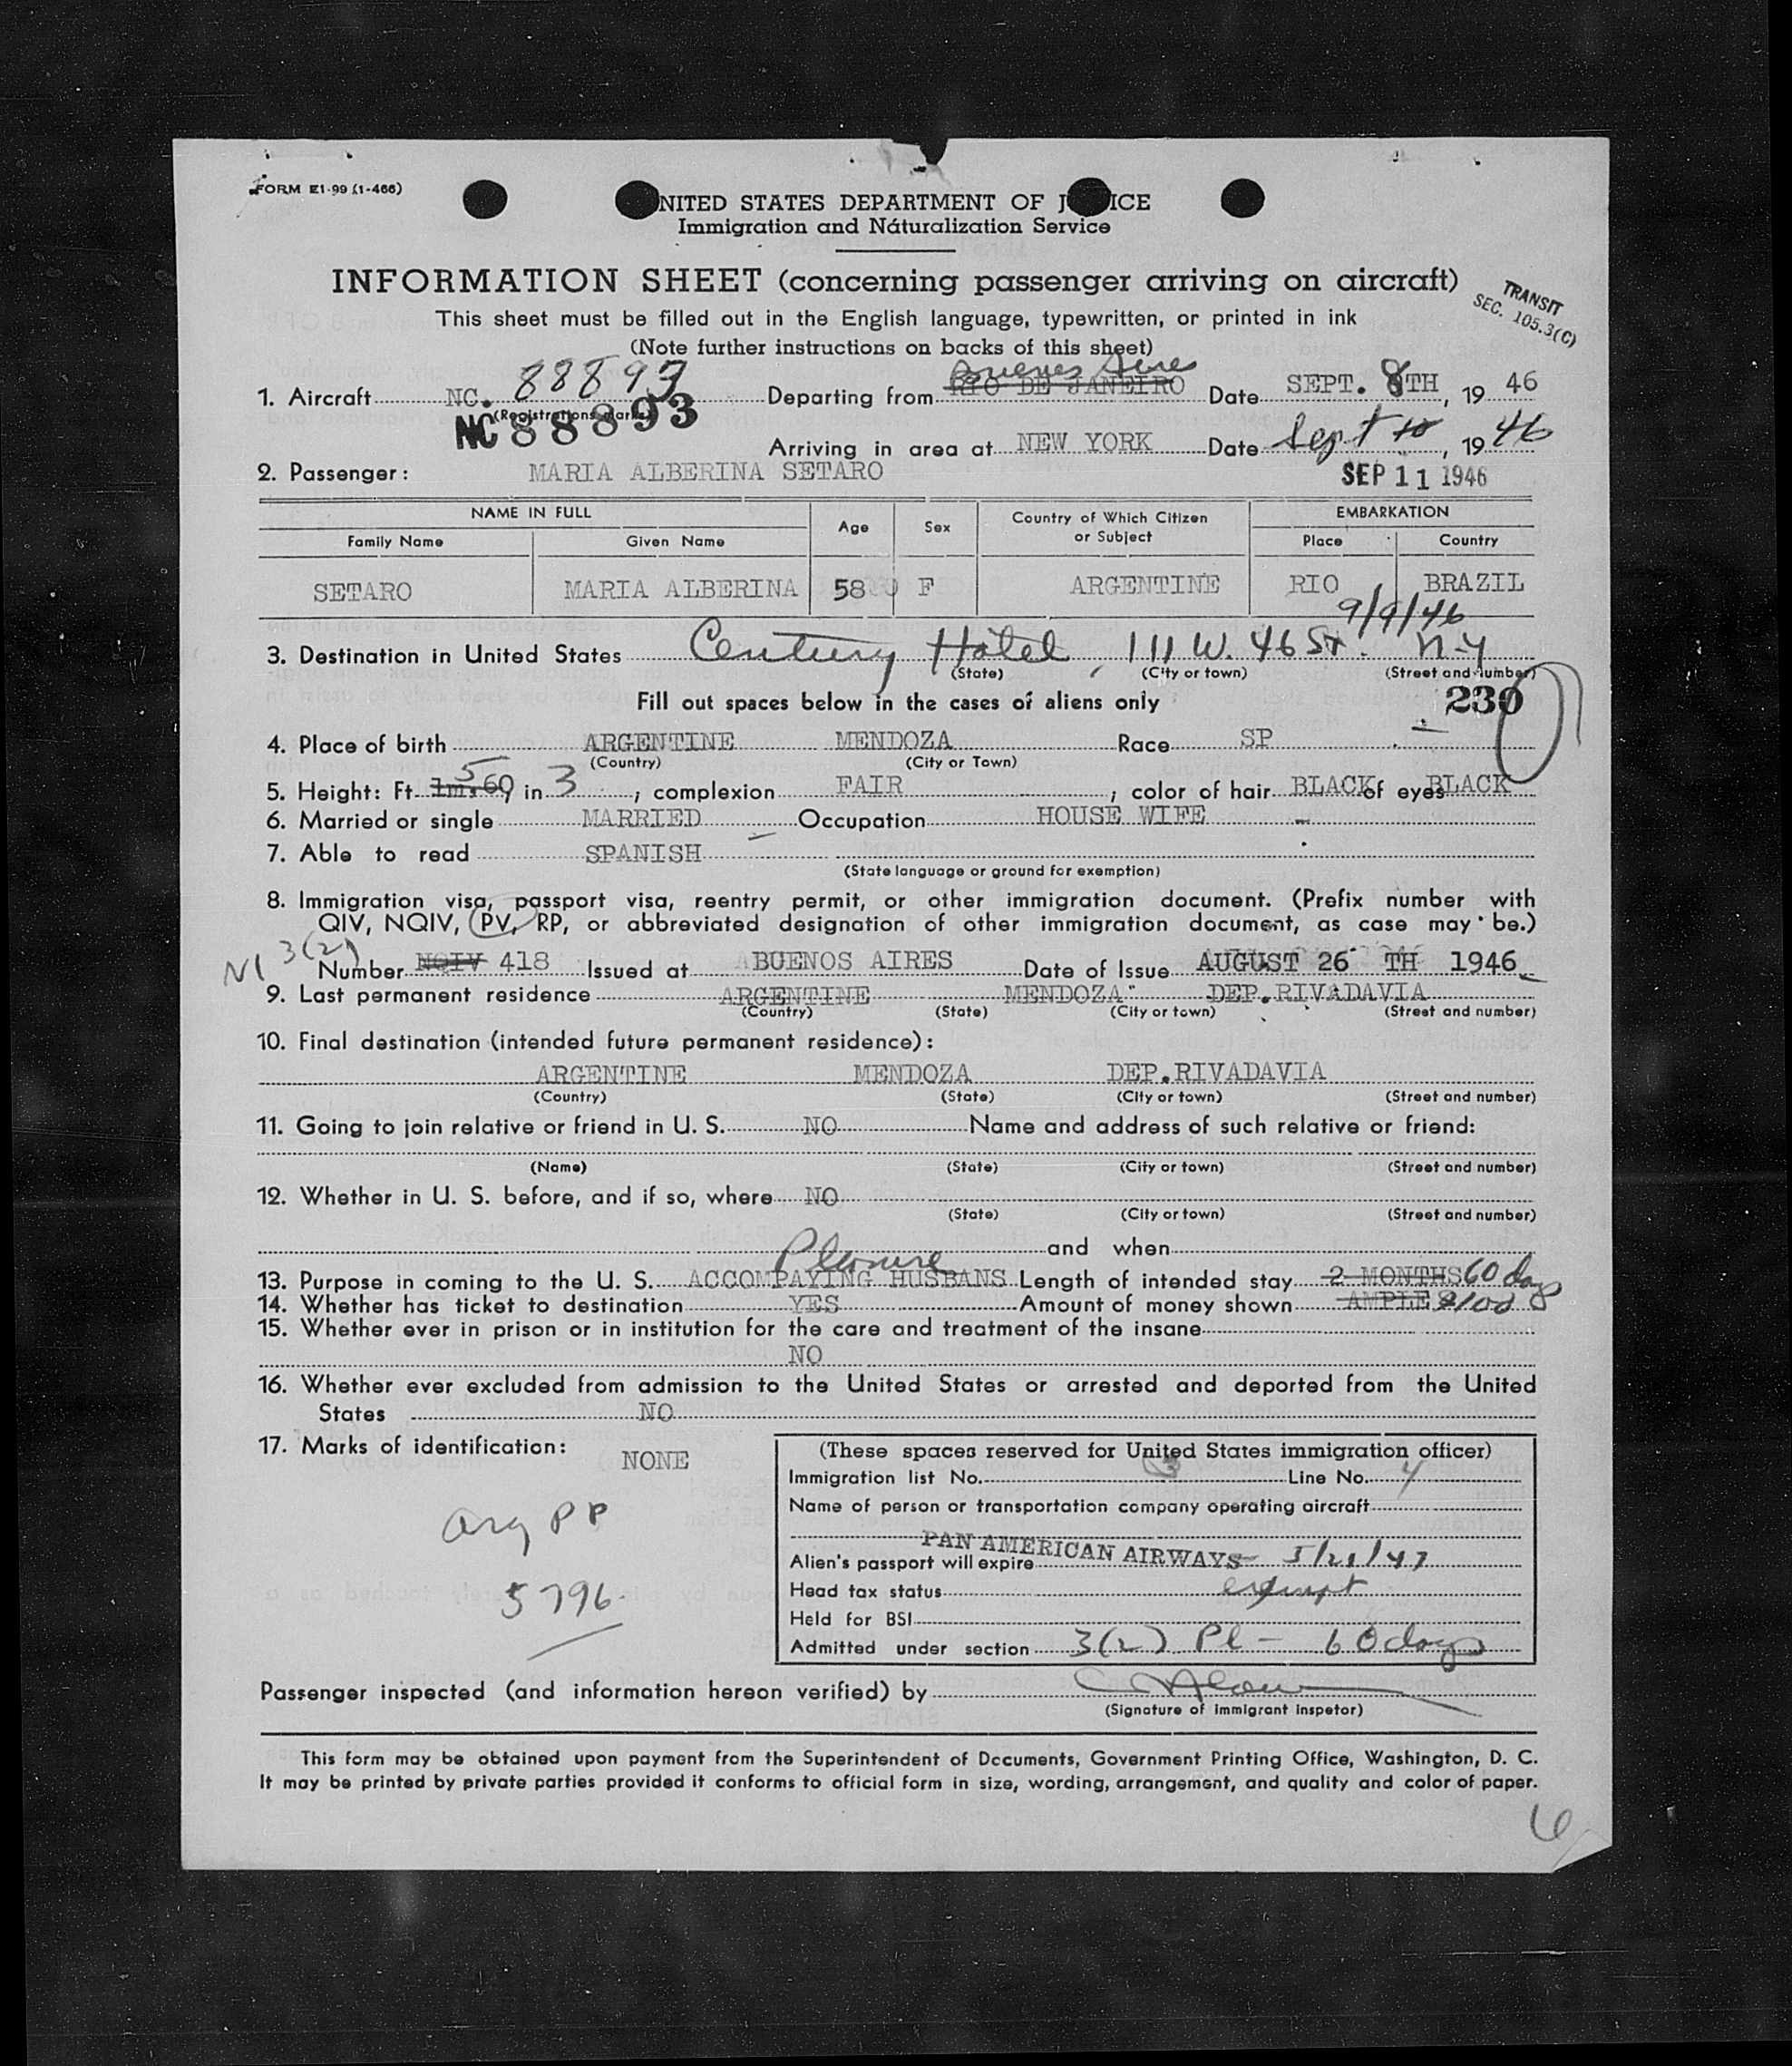 FORM E1-99 (1-466)
UNITED STATES DEPARTMENT OF J ICE
Immigration and Náturalization Service
INFORMATION SHEET (concerning passenger arriving on aircraft)
TRANSIT
SEC. 105.3(C)
This sheet must be filled out in the English language, typewritten, or printed in ink
(Note further instructions on backs of this sheet)
Buenos Aires
1. Aircraft NC. 88893 Departing from RIO DE JANEIRO Date SEPT. 8TH, 19 46
(Registrations marks)
NC 88893
Arriving in area at NEW YORK Date Sept 10, 19 46
2. Passenger: MARIA ALBERINA SETARO SEP 11 1946
NAME IN FULL Age Sex Country of Which Citizen or Subject EMBARKATION
Family Name Given Name Place Country
SETARO MARIA ALBERINA 58 F ARGENTINE RIO BRAZIL
9/9/46
3. Destination in United States Century Hotel, 111 W. 46 St. N-Y
(State) (City or town) (Street and number)
Fill out spaces below in the cases of aliens only 230
4. Place of birth ARGENTINE MENDOZA Race SP
(Country) (City or Town)
5. Height: Ft. 1m.60 5, in 3; complexion FAIR; color of hair BLACK of eyes BLACK
6. Married or single MARRIED Occupation HOUSE WIFE
7. Able to read SPANISH
(State language or ground for exemption)
8. Immigration visa, passport visa, reentry permit, or other immigration document. (Prefix number with
QIV, NQIV, PV, RP, or abbreviated designation of other immigration document, as case may be.)
NI 3(2)
Number NQIV 418 Issued at BUENOS AIRES Date of Issue AUGUST 26 TH 1946
9. Last permanent residence ARGENTINE MENDOZA DEP.RIVADAVIA
(Country) (State) (City or town) (Street and number)
10. Final destination (intended future permanent residence):
ARGENTINE MENDOZA DEP.RIVADAVIA
(Country) (State) (City or town) (Street and number)
11. Going to join relative or friend in U. S. NO Name and address of such relative or friend:
(Name) (State) (City or town) (Street and number)
12. Whether in U. S. before, and if so, where NO
(State) (City or town) (Street and number)
and when
Pleasure
13. Purpose in coming to the U. S. ACCOMPAYING HUSBANS Length of intended stay 2 MONTHS 60 days
14. Whether has ticket to destination YES Amount of money shown AMPLE $100
15. Whether ever in prison or in institution for the care and treatment of the insane
NO
16. Whether ever excluded from admission to the United States or arrested and deported from the United
States NO
17. Marks of identification: NONE
Arg PP
5796
(These spaces reserved for United States immigration officer)
Immigration list No. 3 Line No. 4
Name of person or transportation company operating aircraft
PAN AMERICAN AIRWAYS
Alien's passport will expire 5/21/47
Head tax status exempt
Held for BSI
Admitted under section 3(2) Pl - 60 days
Passenger inspected (and information hereon verified) by
(Signature of Immigrant Inspetor)
This form may be obtained upon payment from the Superintendent of Documents, Government Printing Office, Washington, D. C.
It may be printed by private parties provided it conforms to official form in size, wording, arrangement, and quality and color of paper.
6